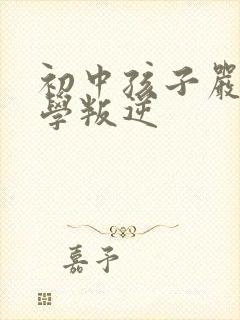 初中孩子嚴
學叛逆
嘉予